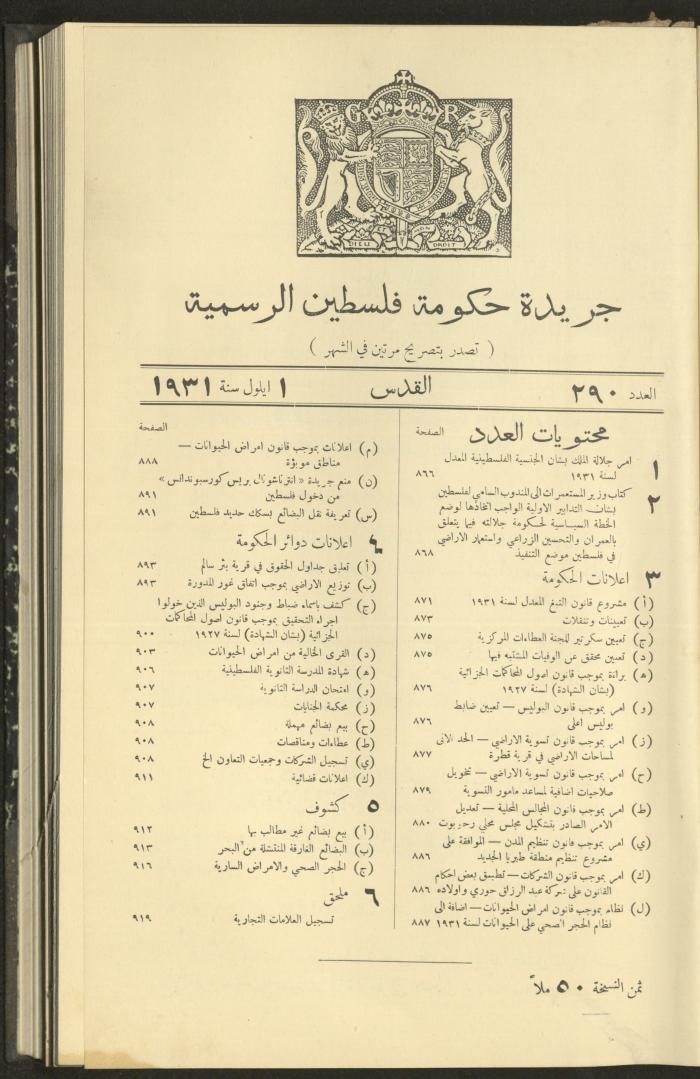 G R
DIEU ET MON DROIT
جريدة حكومة فلسطين الرسمية
( تصدر بتصريح مرتين في الشهر )
العدد ٢٩٠ القدس ١ ايلول سنة ١٩٣١
محتويات العدد الصفحة
١ امر جلالة الملك بشان الجنسية الفلسطينية المعدل
لسنة ١٩٣١ ٨٦٦
٢ كتاب وزير المستعمرات الى المندوب السامي لفلسطين
بشان التدابير الاولية الواجب اتخاذها لوضع
الخطة السياسية لحكومة جلالته فيما يتعلق
بالعمران والتحسين الزراعي واستعمار الاراضي
في فلسطين موضع التنفيذ ٨٦٨
٣ اعلانات الحكومة
(أ) مشروع قانون التبغ المعدل لسنة ١٩٣١ ٨٧١
(ب) تعيينات وتنقلات ٨٧٣
(ج) تعيين سكرتير للجنة العطاءات المركزية ٨٧٥
(د) تعيين محقق عن الوفيات المشتبه فيها ٨٧٥
(ه) براءة بموجب قانون اصول المحاكمات الجزائية
(بشان الشهادة) لسنة ١٩٢٧ ٨٧٦
(و) امر بموجب قانون البوليس — تعيين ضابط
بوليس اعلى ٨٧٦
(ز) امر بموجب قانون تسوية الاراضي — الحد الادنى
لمساحات الاراضي في قرية قطرة ٨٧٧
(ح) امر بموجب قانون تسوية الاراضي — تخويل
صلاحيات اضافية لمساعد مامور التسوية ٨٧٩
(ط) امر بموجب قانون المجالس المحلية — تعديل
الامر الصادر بتشكيل مجلس محلي رحوبوت ٨٨٠
(ي) امر بموجب قانون تنظيم المدن — الموافقة على
مشروع تنظيم منطقة طبريا الجديد ٨٨٦
(ك) امر بموجب قانون الشركات — تطبيق بعض احكام
القانون على شركة عبد الرزاق حوري واولاده ٨٨٦
(ل) نظام بموجب قانون امراض الحيوانات — اضافة الى
نظام الحجر الصحي على الحيوانات لسنة ١٩٣١ ٨٨٧
الصفحة
(م) اعلانات بموجب قانون امراض الحيوانات —
مناطق موبؤة ٨٨٨
(ن) منع جريدة « انترناشونال بريس كورسبوندانس »
من دخول فلسطين ٨٩١
(س) تعريفة نقل البضائع بسكك حديد فلسطين ٨٩١
٤ اعلانات دوائر الحكومة
(أ) تعليق جداول الحقوق في قرية بئر سالم ٨٩٣
(ب) توزيع الاراضي بموجب اتفاق غور المدورة ٨٩٣
(ج) كشف باسماء ضباط وجنود البوليس الذين خولوا
اجراء التحقيق بموجب قانون اصول المحاكمات
الجزائية (بشان الشهادة) لسنة ١٩٢٧ ٩٠٠
(د) القرى الخالية من امراض الحيوانات ٩٠٣
(ه) شهادة المدرسة الثانوية الفلسطينية ٩٠٦
(و) امتحان الدراسة الثانوية ٩٠٧
(ز) محكمة الجنايات ٩٠٧
(ح) بيع بضائع مهملة ٩٠٨
(ط) عطاءات ومناقصات ٩٠٨
(ي) تسجيل الشركات وجمعيات التعاون الخ ٩٠٨
(ك) اعلانات قضائية ٩١١
٥ كشوف
(أ) بيع بضائع غير مطالب بها ٩١٢
(ب) البضائع الغارقة المنتشلة من البحر ٩١٣
(ج) الحجر الصحي والامراض السارية ٩١٦
٦ ملحق
تسجيل العلامات التجارية ٩١٩
ثمن النسخة ٥٠ ملاً